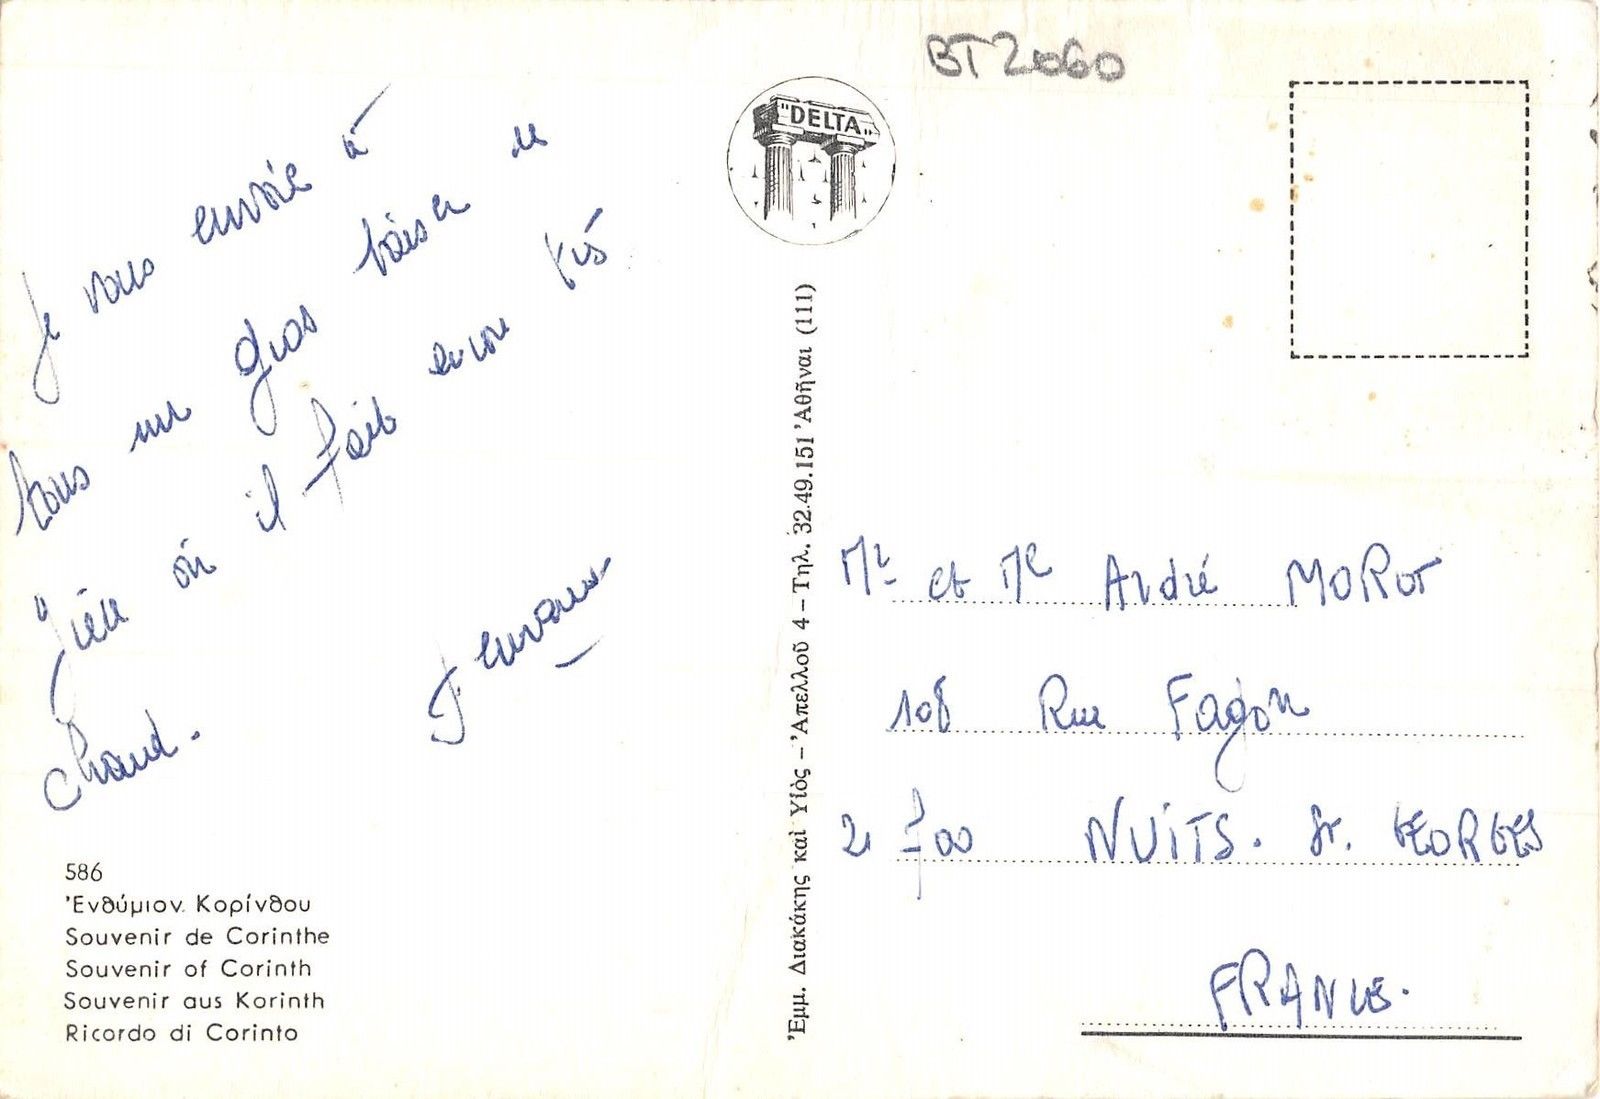 BT2060
"DELTA"
Je vous envoie à
tous un gros baiser de
Grèce où il fait encore très
chaud.
586
Ἐνθύμιον Κορίνθου
Souvenir de Corinthe
Souvenir of Corinth
Souvenir aus Korinth
Ricordo di Corinto
Ἐμμ. Διακάκης καὶ Υἱὸς – Ἀπελλοῦ 4 – Τηλ. 32.49.151 Ἀθῆναι (111)
Mr et Me André MOROT
108 Rue Fagon
21700 NUITS. St. GEORGES
FRANCE.